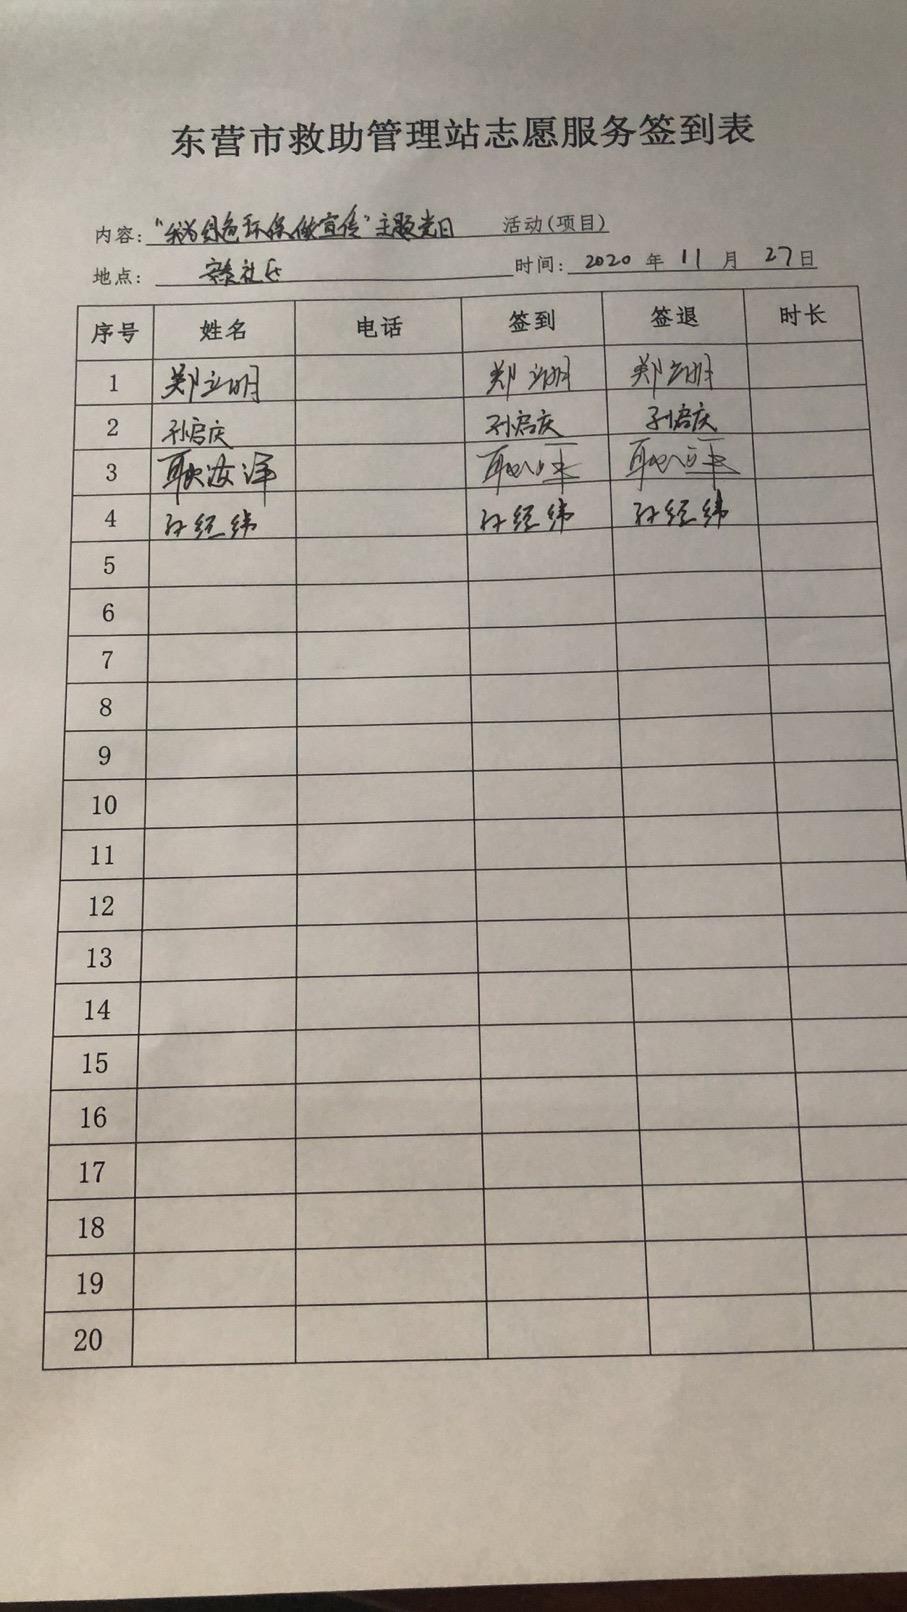 东营市救助管理站志愿服务签到表
内容:“我为绿色环保做宣传”主题党日 活动(项目)
地点: 社区 时间: 2020 年 11 月 27 日
序号 姓名 电话 签到 签退 时长
1 郑立明 郑立明 郑立明
2 孙启庆 孙启庆 孙启庆
3 耿汝泽
4 孙经纬 孙经纬 孙经纬
5
6
7
8
9
10
11
12
13
14
15
16
17
18
19
20